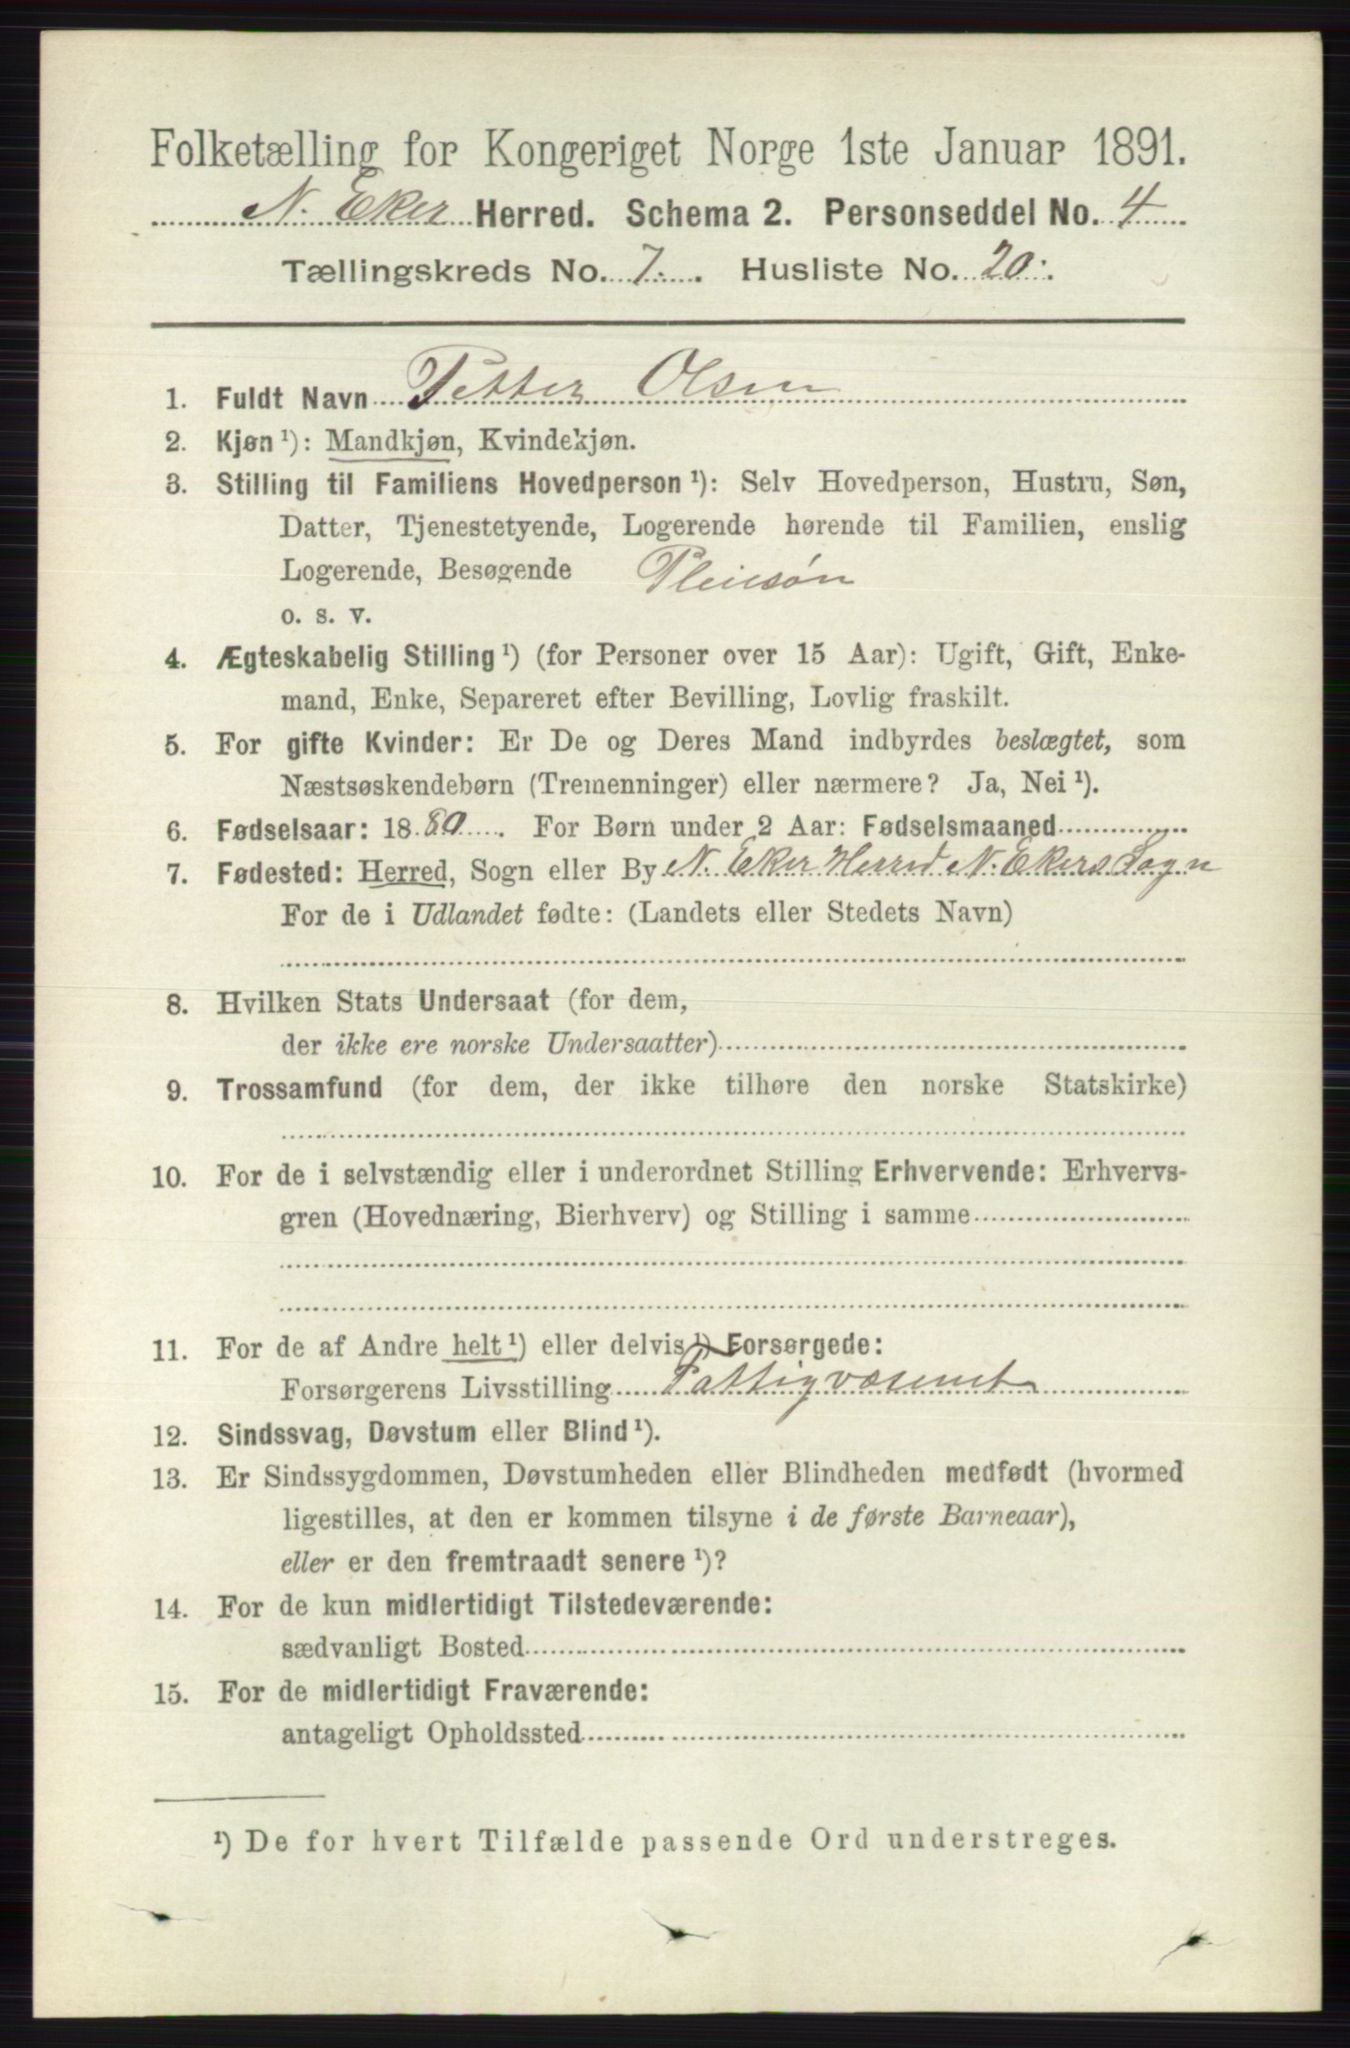 Folketælling for Kongeriget Norge 1ste Januar 1891.
N. Eker Herred. Schema 2. Personseddel No. 4
Tællingskreds No. 7. Husliste No. 20.
1. Fuldt Navn Petter Olsen
2. Kjøn ¹): Mandkjøn, Kvindekjøn.
3. Stilling til Familiens Hovedperson ¹): Selv Hovedperson, Hustru, Søn,
Datter, Tjenestetyende, Logerende hørende til Familien, enslig
Logerende, Besøgende Pleiesøn
o. s. v.
4. Ægteskabelig Stilling ¹) (for Personer over 15 Aar): Ugift, Gift, Enke-
mand, Enke, Separeret efter Bevilling, Lovlig fraskilt.
5. For gifte Kvinder: Er De og Deres Mand indbyrdes beslægtet, som
Næstsøskendebørn (Tremenninger) eller nærmere? Ja, Nei ¹).
6. Fødselsaar: 1880. For Børn under 2 Aar: Fødselsmaaned
7. Fødested: Herred, Sogn eller By N. Eker Herred N. Ekers Sogn
For de i Udlandet fødte: (Landets eller Stedets Navn)
8. Hvilken Stats Undersaat (for dem,
der ikke ere norske Undersaatter)
9. Trossamfund (for dem, der ikke tilhøre den norske Statskirke)
10. For de i selvstændig eller i underordnet Stilling Erhvervende: Erhvervs-
gren (Hovednæring, Bierhverv) og Stilling i samme
11. For de af Andre helt ¹) eller delvis ¹) Forsørgede:
Forsørgerens Livsstilling Fattigvæsenet
12. Sindssvag, Døvstum eller Blind ¹).
13. Er Sindssygdommen, Døvstumheden eller Blindheden medfødt (hvormed
ligestilles, at den er kommen tilsyne i de første Barneaar),
eller er den fremtraadt senere ¹)?
14. For de kun midlertidigt Tilstedeværende:
sædvanligt Bosted
15. For de midlertidigt Fraværende:
antageligt Opholdssted
¹) De for hvert Tilfælde passende Ord understreges.